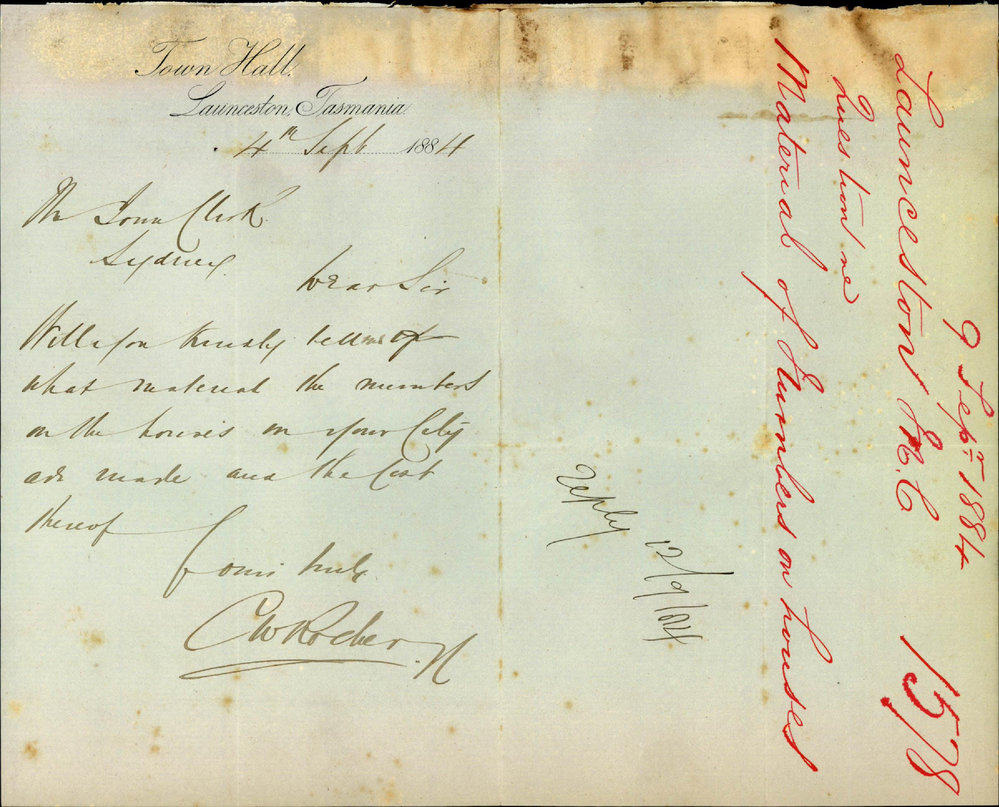 Town Hall,
Launceston, Tasmania
4th Sept 1884
The Town Clerk
Sydney
Dear Sir
Will you kindly tell me of
what material the numbers
on the houses in your City
are made and the Cost
thereof
Yours truly
C W Rocher
reply
12/9/84
9 Sepr 1884
Launceston M.C
1578
Question re
Material of Numbers on houses